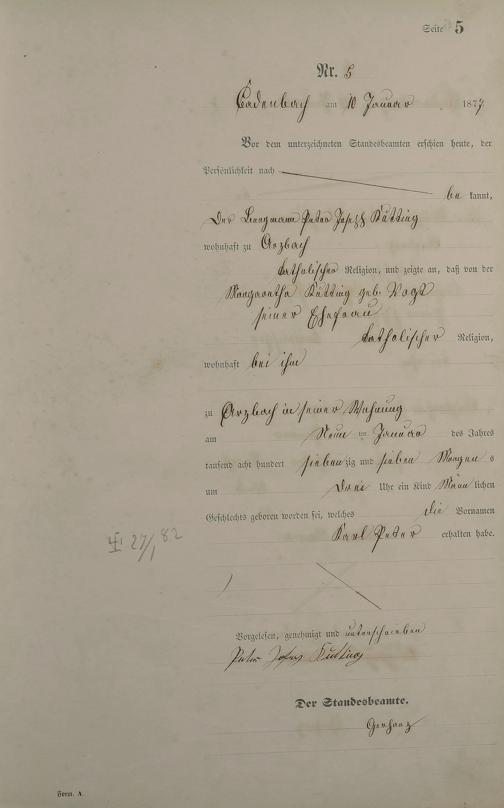 Seite 5
Nr. 5
Cadenbach am 10 Januar 1877
Vor dem unterzeichneten Standesbeamten erschien heute, der
Persönlichkeit nach
be kannt,
Der Bergmann Peter Joseph Kütting
wohnhaft zu Arzbach
katholischer Religion, und zeigte an, daß von der
Margaretha Kütting geb. Vogt
seiner Ehefrau
katholischer Religion,
wohnhaft bei ihm
zu Arzbach in seiner Wohnung
am Neun ten Januar des Jahres
tausend acht hundert siebenzig und sieben Morgen s
um Drei Uhr ein Kind Männ lichen
Geschlechts geboren worden sei, welches die Vornamen
Karl Peter erhalten habe.
27/1 82
Vorgelesen, genehmigt und unterschrieben
Peter Josef Kütting
Der Standesbeamte.
Gerharz
Form. A.